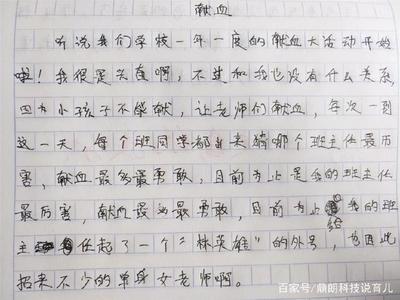 献血
听说我们学校一年一度的献血大活动开始
啦！我很是兴奋啊，不过和我也没有什么关系，
因为小孩子不能献，让老师们献血，每次一到
这一天，每个班同学都出来猜哪个班主任最厉
害，献血最多最勇敢，目前为止是我的班主任
最厉害，献血最多最勇敢，目前为止我的班
主任给起了一个“林英雄”的外号，为因此
招来不少的单身女老师啊。
百家号/鼎朗科技说育儿